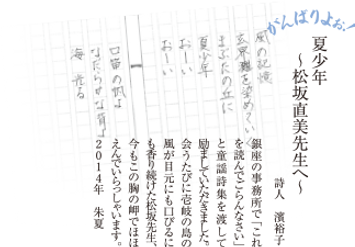 がんばりよぉ!
夏少年
～松坂直美先生へ～
詩人 濱裕子
風の記憶
玄界灘を染めていく
まぶたの丘に
夏少年
おーい
おーい
口笛の帆よ
なだらかな背よ
海 光る
銀座の事務所で「これ
を読んでごらんなさい」
と童謡詩集を渡して
励ましていただきました。
会うたびに壱岐の島の
風が目元にも口びるに
も香り続けた松坂先生、
今もこの胸の岬でほほ
えんでいらっしゃいます。
2014年 朱夏